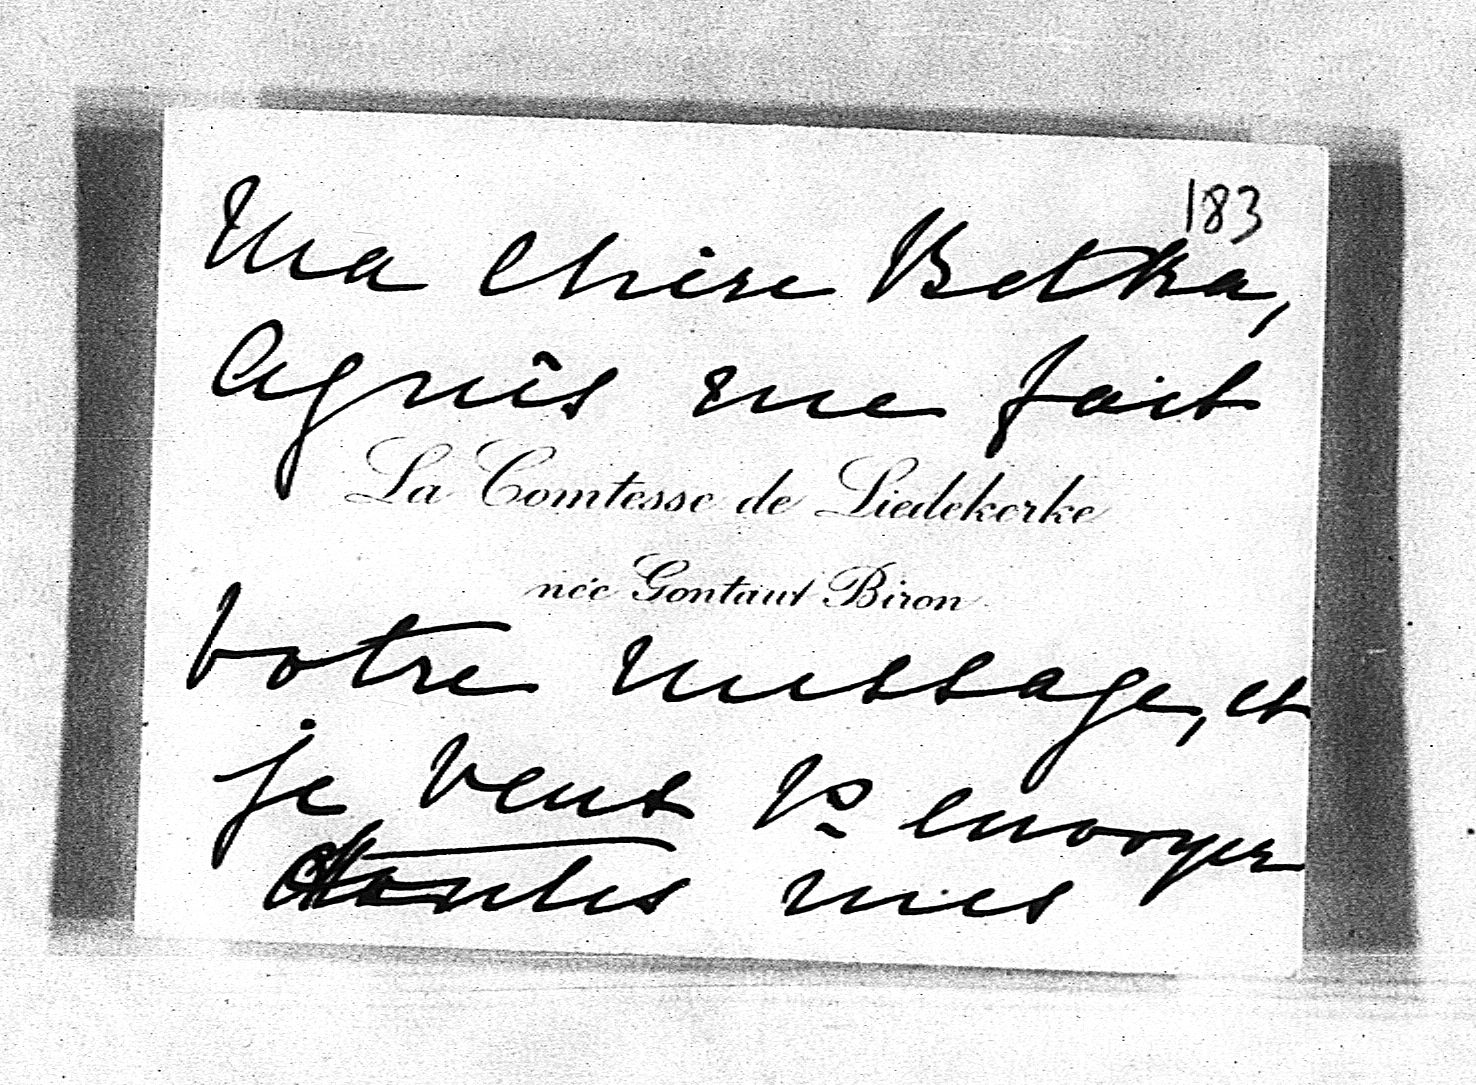 183
Ma chère Betka,
Agnès me fait
La Comtesse de Liedekerke
née Gontaut Biron
votre message, et
je veux Vs envoyer
toutes mes